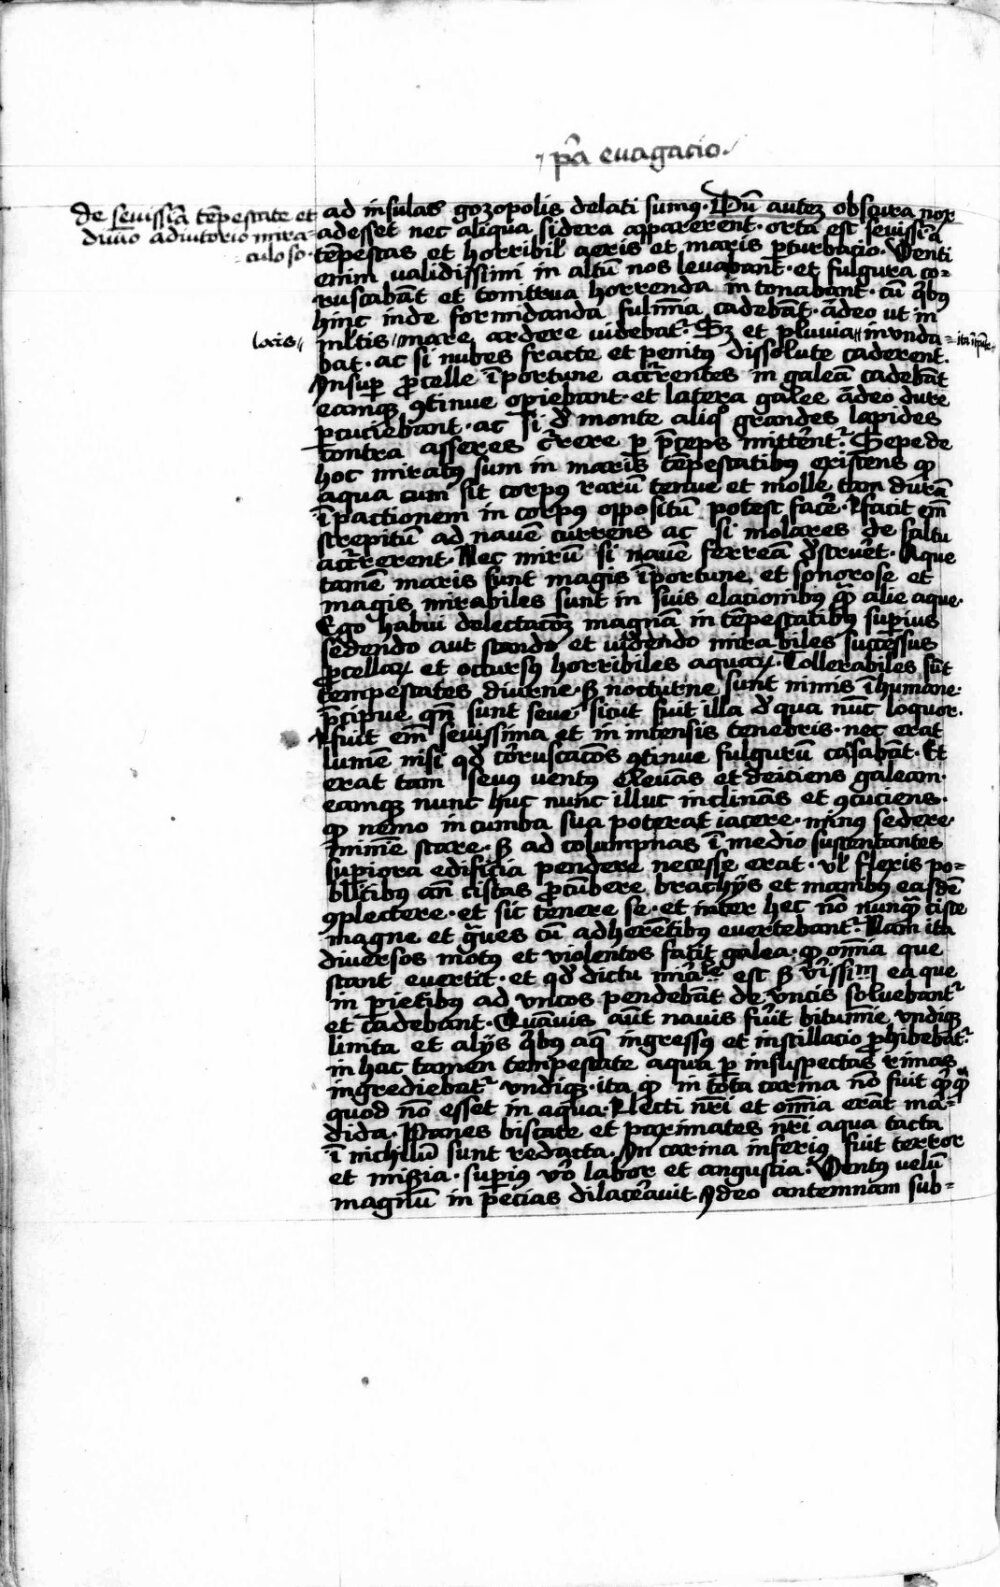 pͣa evagacio
de seuissīa tēpestate et
diuīo adiutorio mira-
culoso.
ad insulas gozopolis delati sumꝰ. Dū autez obscura nox
adesset nec aliqua sidera apparerent. orta est seuissīa
tēpestas et horribilꝭ aeris et maris ꝑturbacio. Venti
enim validissimi in altū nos leuabant. et fulgura co-
ruscabāt et tonitrua horrenda intonabant. cū qͥbꝰ
hinc inde formidanda fulmīa cadebāt. adeo ut in
locis
mltis mare ardere videbatʳ. Sꝫ et pluuia inunda-
bat. ac si nubes fracte et penitꝰ dissolute caderent.
Insuꝑ ꝓcelle īportune accʳrentes in galeā cadebāt
eamqꝫ ꝯtinue oꝑiebant. et latera galee adeo dure
ꝑcuciebant. ac si de monte aliqͦ grandes lapides
contra asseres cʳrere ꝑ p̄ceps mittērentʳ. Sepe de
hoc miratꝰ sum in maris tēpestatibꝰ existens ꝙ
aqua cum sit corpꝰ rarū tenue et molle tam durā
īpactionem in corpꝰ oppositum potest facē. Nfacit em̄
strepitū ad nauē currens ac si molares de saltu
accʳrerent. Nec mirū si nauē ferreā dͤstruēt. Aque
tamē maris sunt magis īportune et sonorose et
magis mirabiles sunt in suis elationibꝰ qͣ̄ alie aque.
Ego habui delectacōꝫ magnā in tēpestatibꝰ suꝑius
sedendo aut stando et videndo mirabiles successus
ꝓcellaꝝ et occursꝰ horribiles aquaꝝ. Tollerabiles sūt
tempestates diurne. sꝫ nocturne sunt nimis īhumane.
p̄cipue qn̄ sunt seue. sicut fuit illa de qua nūc loquor.
Nfuit em̄ seuissima et in intensis tenebris. nec erat
lumē nisi qd̓ coruscacōes ꝯtinue fulgurū causabāt. Et
erat tam seuꝰ ventꝰ eleuās et deiciens galeam.
eamqꝫ nunc huc nunc illuc inclināns et ꝯcuciens.
ꝙ nemo in cumba sua poterat iacere. minus sedere.
minīe stare. sꝫ ad columpnas ī medio sustentantes
suꝑiora edificia pendere necesse erat. vl̓ flexis po-
blitibus an̄ cistas ꝓcūbere brachijs et manibus easdē
ꝯplectere. et sic tenere se. et inter hec nō nunqͣ̄ ciste
magne et gͣues cū adherētibus euertebantʳ. Nam ita
diuersos motꝰ et violentos facit galea. ꝙ omīa que
stant euertit. et qd̓ dictu mirāle est sꝫ v̄issimū ea que
in ꝑietibus ad vncos pendebāt de vncis soluebantʳ
et cadebant. Quāuis aūt nauis fuīt bitumīe vndiqꝫ
linita et alijs qͥbꝰ aq̄ ingressꝰ et instillacio ꝓhibebātʳ.
in hac tamen tempestate aqua ꝑ insuspectas rimas
ingrediebatʳ vndiqꝫ. ita ꝙ in tota carina nō fuit qͥcqͣ̄
quod nō esset in aqua. Nlecti nr̄i et omīa erāt ma-
dida. Panes biscacte et paximates nr̄i aqua tacta
ī nichilū sunt redacta. In carina inferiꝰ fuit terror
et miẜia. suꝑius vͦo labor et angustia. Ventꝰ velū
magnū in pecias dilacērauit. Ideo antemnam sub-